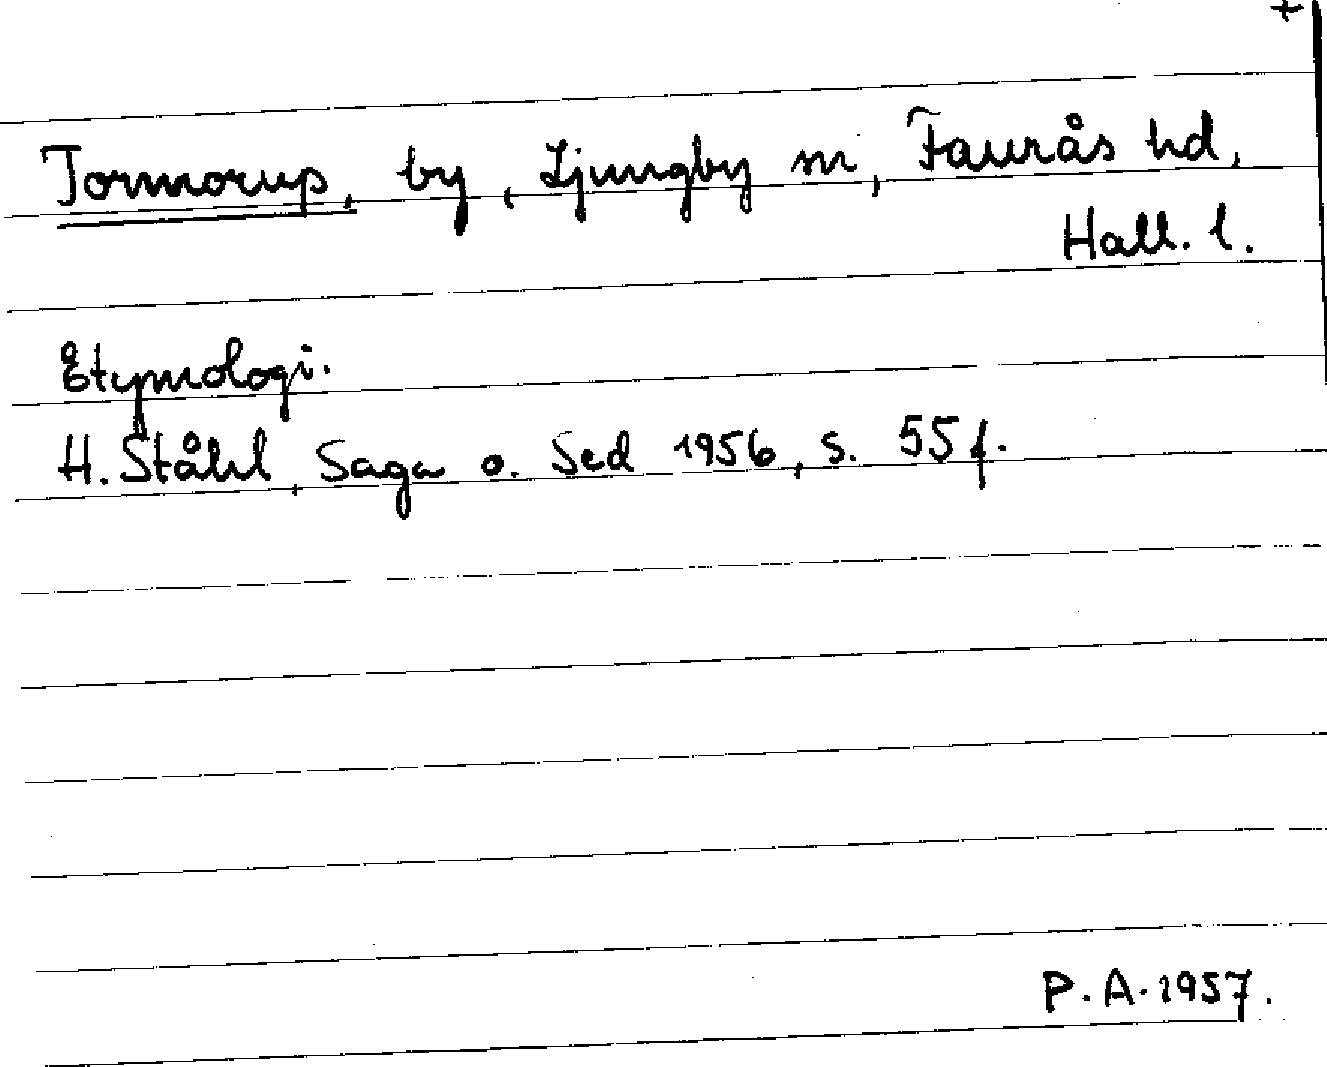 +
Tormorup, by, Ljungby sn, Faurås hd,
Hall. l.
Etymologi.
H. Ståhl, Saga o. Sed 1956, s. 55 f.
P. A. 1957.